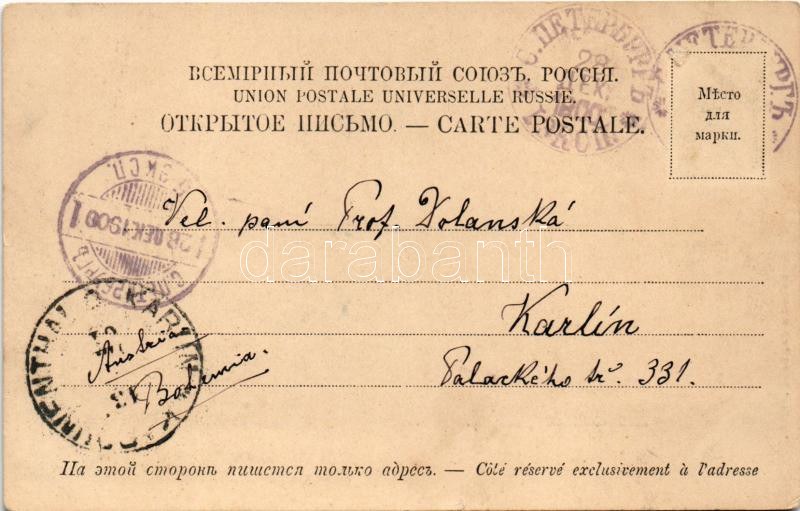 ВСЕМІРНЫЙ ПОЧТОВЫЙ СОЮЗЪ. РОССІЯ.
UNION POSTALE UNIVERSELLE RUSSIE.
ОТКРЫТОЕ ПИСЬМО. — CARTE POSTALE.
Мѣсто
для
марки.
С.ПЕТЕРБУРГЪ
28
ДЕК.
ПЕТЕРБУРГЪ
28 ДЕК 1900
1
С.ПЕТЕРБУРГЪ
Vel. paní Prof. Dolanská
Karlín
Palackého tř. 331.
Austria
Bohemia.
KAROLINENTHAL KARLIN
darabanth
На этой сторонѣ пишется только адресъ. — Côté réservé exclusivement à l'adresse